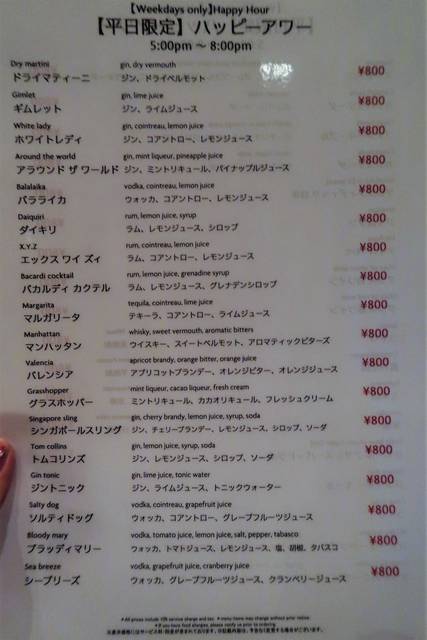 【Weekdays only】Happy Hour
【平日限定】ハッピーアワー
5:00pm ～ 8:00pm
Dry martini gin, dry vermouth
ドライマティーニ ジン、ドライベルモット ¥800
Gimlet gin, lime juice
ギムレット ジン、ライムジュース ¥800
White lady gin, cointreau, lemon juice
ホワイトレディ ジン、コアントロー、レモンジュース ¥800
Around the world gin, mint liqueur, pineapple juice
アラウンド ザ ワールド ジン、ミントリキュール、パイナップルジュース ¥800
Balalaika vodka, cointreau, lemon juice
バラライカ ウォッカ、コアントロー、レモンジュース ¥800
Daiquiri rum, lemon juice, syrup
ダイキリ ラム、レモンジュース、シロップ ¥800
X.Y.Z rum, cointreau, lemon juice
エックス ワイ ズィ ラム、コアントロー、レモンジュース ¥800
Bacardi cocktail rum, lemon juice, grenadine syrup
バカルディ カクテル ラム、レモンジュース、グレナデンシロップ ¥800
Margarita tequila, cointreau, lime juice
マルガリータ テキーラ、コアントロー、ライムジュース ¥800
Manhattan whisky, sweet vermouth, aromatic bitters
マンハッタン ウイスキー、スイートベルモット、アロマティックビターズ ¥800
Valencia apricot brandy, orange bitter, orange juice
バレンシア アプリコットブランデー、オレンジビター、オレンジジュース ¥800
Grasshopper mint liqueur, cacao liqueur, fresh cream
グラスホッパー ミントリキュール、カカオリキュール、フレッシュクリーム ¥800
Singapore sling gin, cherry brandy, lemon juice, syrup, soda
シンガポールスリング ジン、チェリーブランデー、レモンジュース、シロップ、ソーダ ¥800
Tom collins gin, lemon juice, syrup, soda
トムコリンズ ジン、レモンジュース、シロップ、ソーダ ¥800
Gin tonic gin, lime juice, tonic water
ジントニック ジン、ライムジュース、トニックウォーター ¥800
Salty dog vodka, cointreau, grapefruit juice
ソルティドッグ ウォッカ、コアントロー、グレープフルーツジュース ¥800
Bloody mary vodka, tomato juice, lemon juice, salt, pepper, tabasco
ブラッディマリー ウォッカ、トマトジュース、レモンジュース、塩、胡椒、タバスコ ¥800
Sea breeze vodka, grapefruit juice, cranberry juice
シーブリーズ ウォッカ、グレープフルーツジュース、クランベリージュース ¥800
* All prices include 10% service charge and tax. * menu items may change without prior notice.
* If you have food allergies, please notify us prior to ordering.